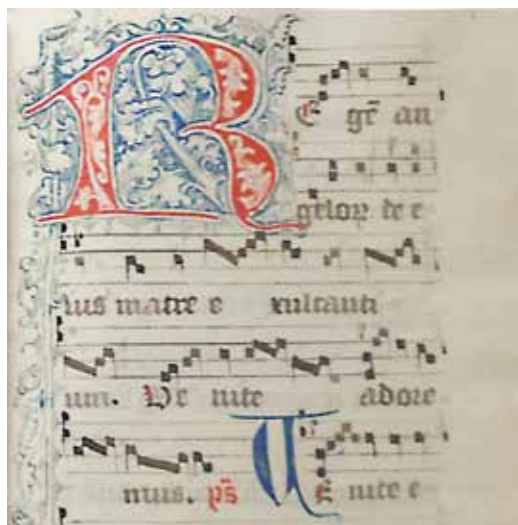 RE gē an
gelorꝝ de e
ius matre e xultanti
um. Ve nite adore
mus. ps̄ VE nite e